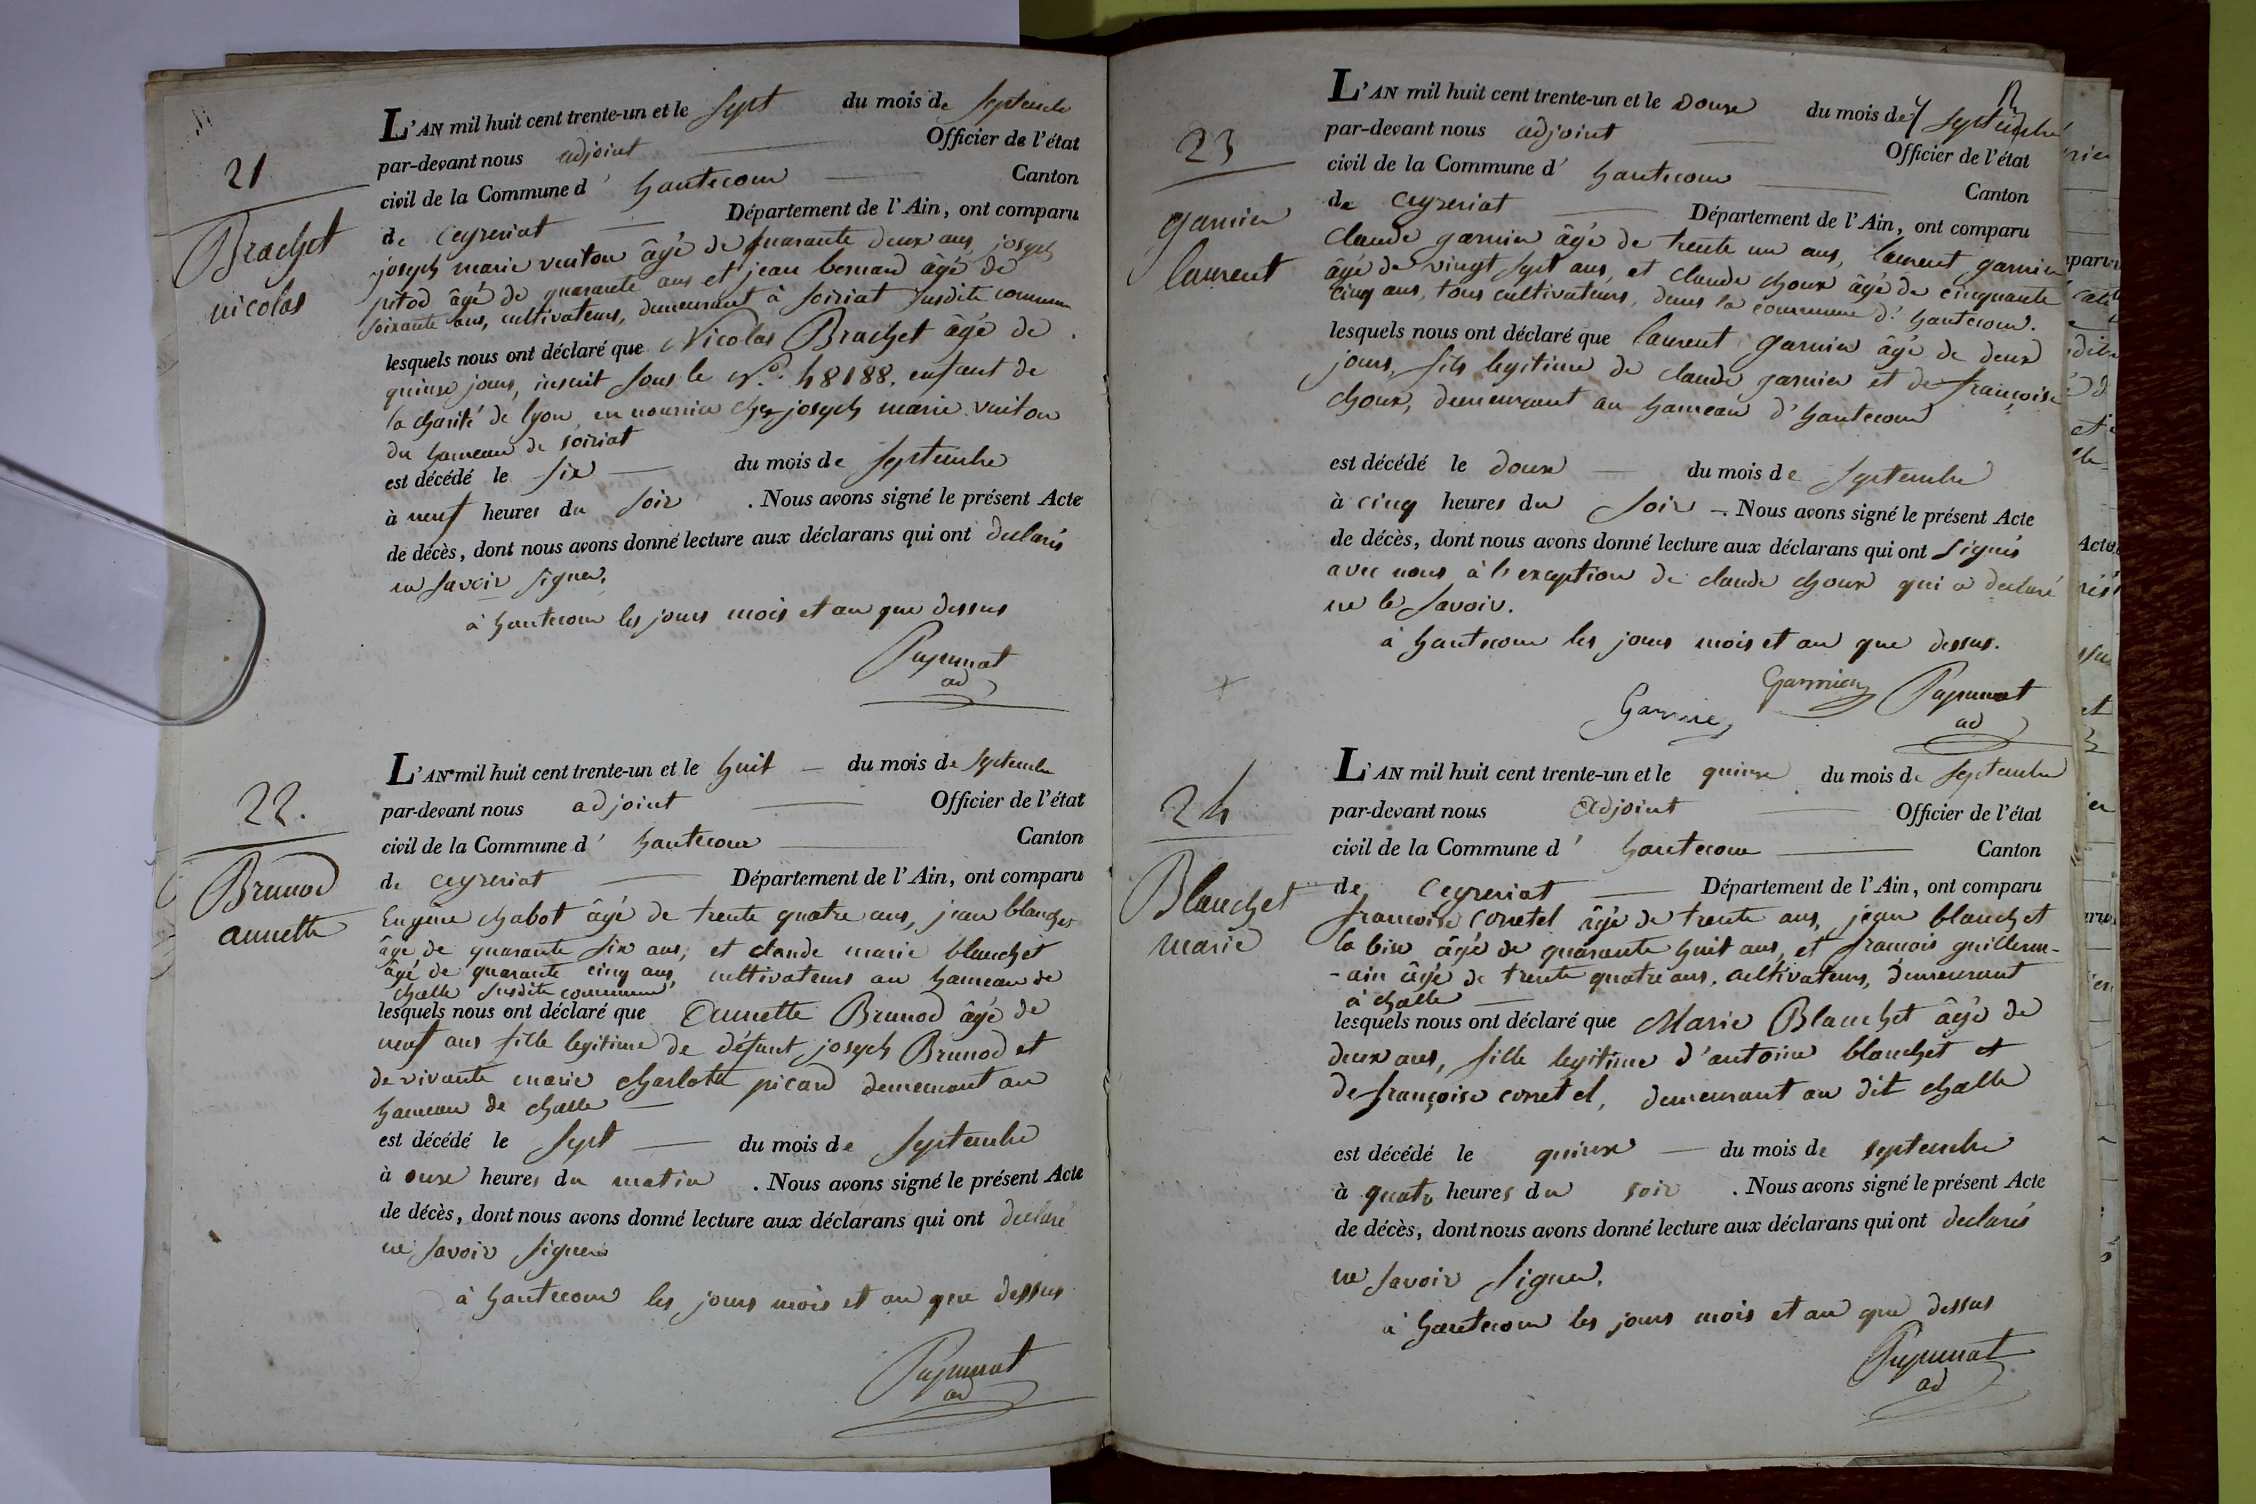 21
Brachet
nicolas
L'AN mil huit cent trente-un et le sept du mois de septembre
par-devant nous adjoint Officier de l'état
civil de la Commune d' hautecour Canton
de Ceyzeriat Département de l'Ain, ont comparu
joseph marie vuiton âgé de quarante deux ans, joseph
pitod âgé de quarante ans et jean bernard âgé de
soixante ans, cultivateurs, demeurant à soiriat susdite commune
lesquels nous ont déclaré que Nicolas Brachet âgé de
quinze jours, inscrit sous le N.o 48188. enfant de
la charité de lyon, en nourrice chez joseph marie vuiton
du hameau de soiriat
est décédé le six du mois de septembre
à neuf heures du soir . Nous avons signé le présent Acte
de décès, dont nous avons donné lecture aux déclarans qui ont declarés
ne savoir signer,
à hautecour les jours mois et an que dessus
ad
22.
Brunod
annette
L'AN mil huit cent trente-un et le huit du mois de septembre
par-devant nous adjoint Officier de l'état
civil de la Commune d' hautecour Canton
de ceyzeriat Département de l'Ain, ont comparu
Eugène chabot âgé de trente quatre ans, jean blanchet
âgé de quarante six ans, et claude marie blanchet
âgé de quarante cinq ans, cultivateurs au hameau de
challe susdite commune
lesquels nous ont déclaré que Annette Brunod âgé de
neuf ans fille legitime de défunt joseph Brunod et
de vivante marie charlotte picard demeurant au
hameau de challe
est décédé le sept du mois de septembre
à onze heures du matin . Nous avons signé le présent Acte
de décès, dont nous avons donné lecture aux déclarans qui ont declaré
ne savoir signer
à hautecour les jours mois et an que dessus
ad
23
garnier
laurent
L'AN mil huit cent trente-un et le douze du mois de septembre
par-devant nous adjoint Officier de l'état
civil de la Commune d' hautecour Canton
de ceyzeriat Département de l'Ain, ont comparu
claude garnier âgé de trente un ans, laurent garnier
âgé de vingt sept ans, et claude choux âgé de cinquante
cinq ans, tous cultivateurs, dans la commune d'hautecour.
lesquels nous ont déclaré que laurent garnier âgé de deux
jours, fils legitime de claude garnier et de françoise
choux, demeurant au hameau d'hautecour
est décédé le douze du mois de septembre
à cinq heures du soir . Nous avons signé le présent Acte
de décès, dont nous avons donné lecture aux déclarans qui ont signés
avec nous à l'exception de claude choux qui a declaré
ne le savoir.
à hautecour les jours mois et an que dessus.
Garnier
Garnier
ad
24
Blanchet
marie
L'AN mil huit cent trente-un et le quinze du mois de septembre
par-devant nous Adjoint Officier de l'état
civil de la Commune d' hautecour Canton
de Ceyzeriat Département de l'Ain, ont comparu
francoise corretel âgé de trente ans, jean blanchet
la bise âgé de quarante huit ans, et francois guillerm-
-ain âgé de trente quatre ans, cultivateurs, demeurant
à challe
lesquels nous ont déclaré que Marie Blanchet âgé de
deux ans, fille legitime d'antoine blanchet et
de françoise corretel, demeurant au dit challe
est décédé le quinze du mois de septembre
à quatre heures du soir . Nous avons signé le présent Acte
de décès, dont nous avons donné lecture aux déclarans qui ont declarés
ne savoir signer.
à hautecour les jours mois et an que dessus
ad